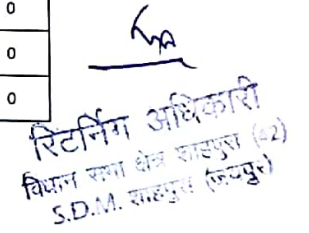 0
0
0
रिटर्निंग अधिकारी
विधान सभा क्षेत्र शाहपुरा (42)
S.D.M. शाहपुरा (जयपुर)